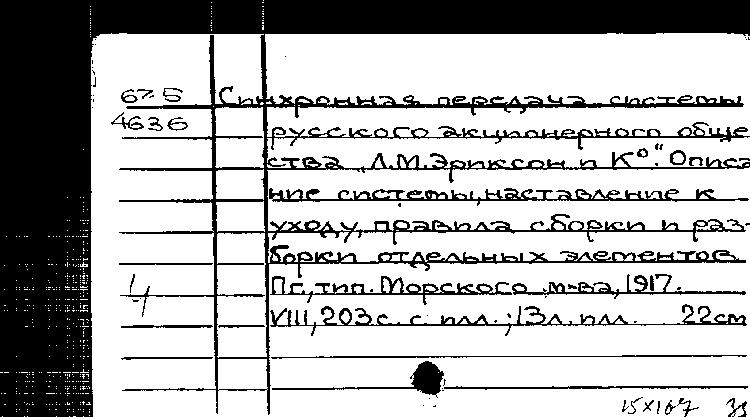 67-5 Синхронная передача системы
4636 русского акционерного обще
ства „Л.М.Эриксон и К°". Описа
ние системы, наставление к
уходу, правила сборки и раз-
борки отдельных элементов
Пг., тип. Морского м-ва, 1917.
VIII, 203 с. с илл.; 13 л. илл. 22см
Ч